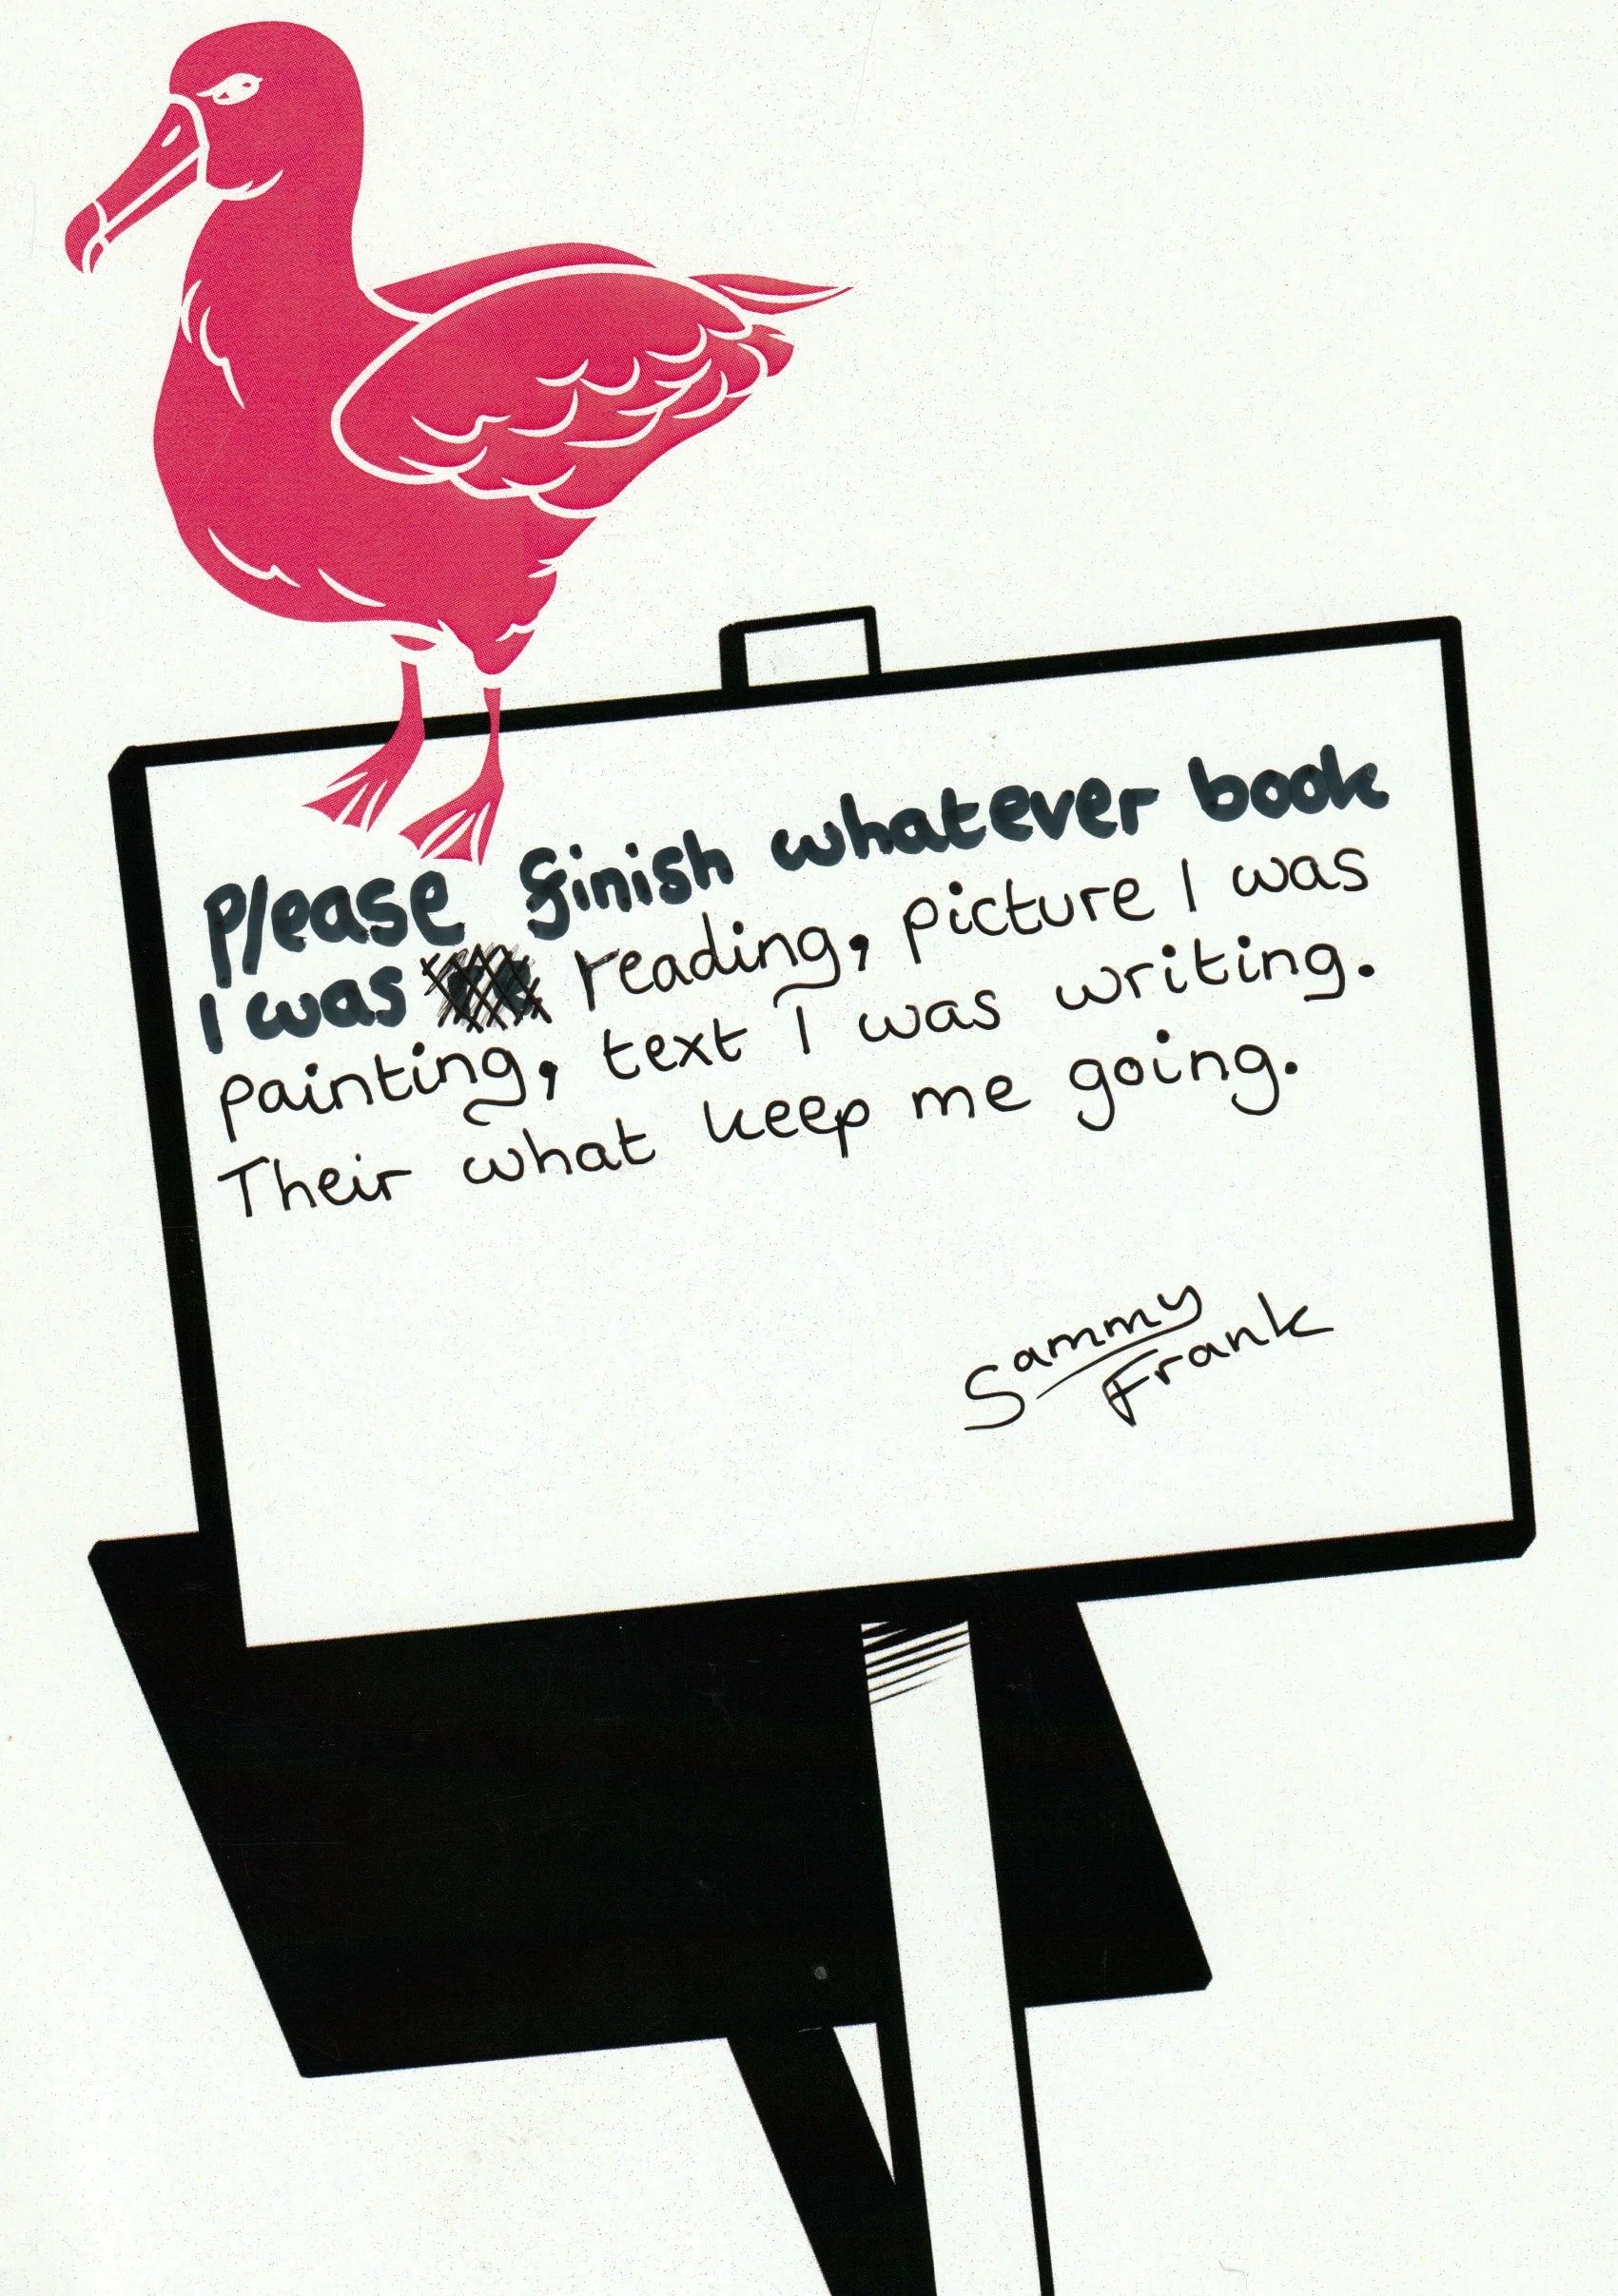 Please finish whatever book
I was reading, picture I was
painting, text I was writing.
Their what keep me going.
Sammy
Frank